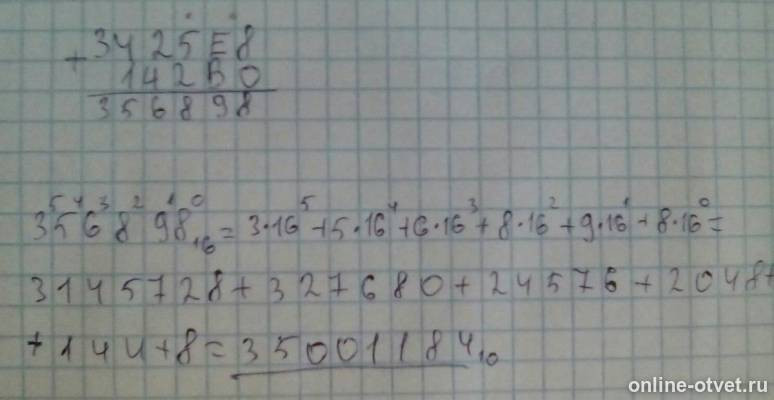 3425E8
+ 142B0
356898
5 4 3 2 1 0
356898₁₆ = 3·16⁵+5·16⁴+6·16³+8·16²+9·16¹+8·16⁰=
3145728+327680+24576+2048+
+144+8=35001184₁₀
online-otvet.ru